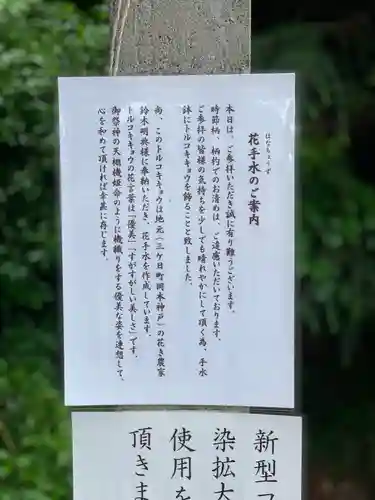 はなちょうず
花手水のご案内
本日は、ご参拝いただき誠に有り難うございます。
時節柄、柄杓でのお清めは、ご遠慮いただいております。
ご参拝の皆様の気持ちを少しでも晴れやかにして頂く為、手水
鉢にトルコキキョウを飾ることと致しました。
尚、このトルコキキョウは地元(三ケ日町岡本神戸)の花き農家
鈴木明典様に奉納いただき、花手水を作成しています。
トルコキキョウの花言葉は「優美」「すがすがしい美しさ」です。
御祭神の天棚機姫命のように機織りをする優美な姿を連想して、
心を和めて頂ければ幸甚に存じます。
新型コ
染拡大
使用を
頂きま